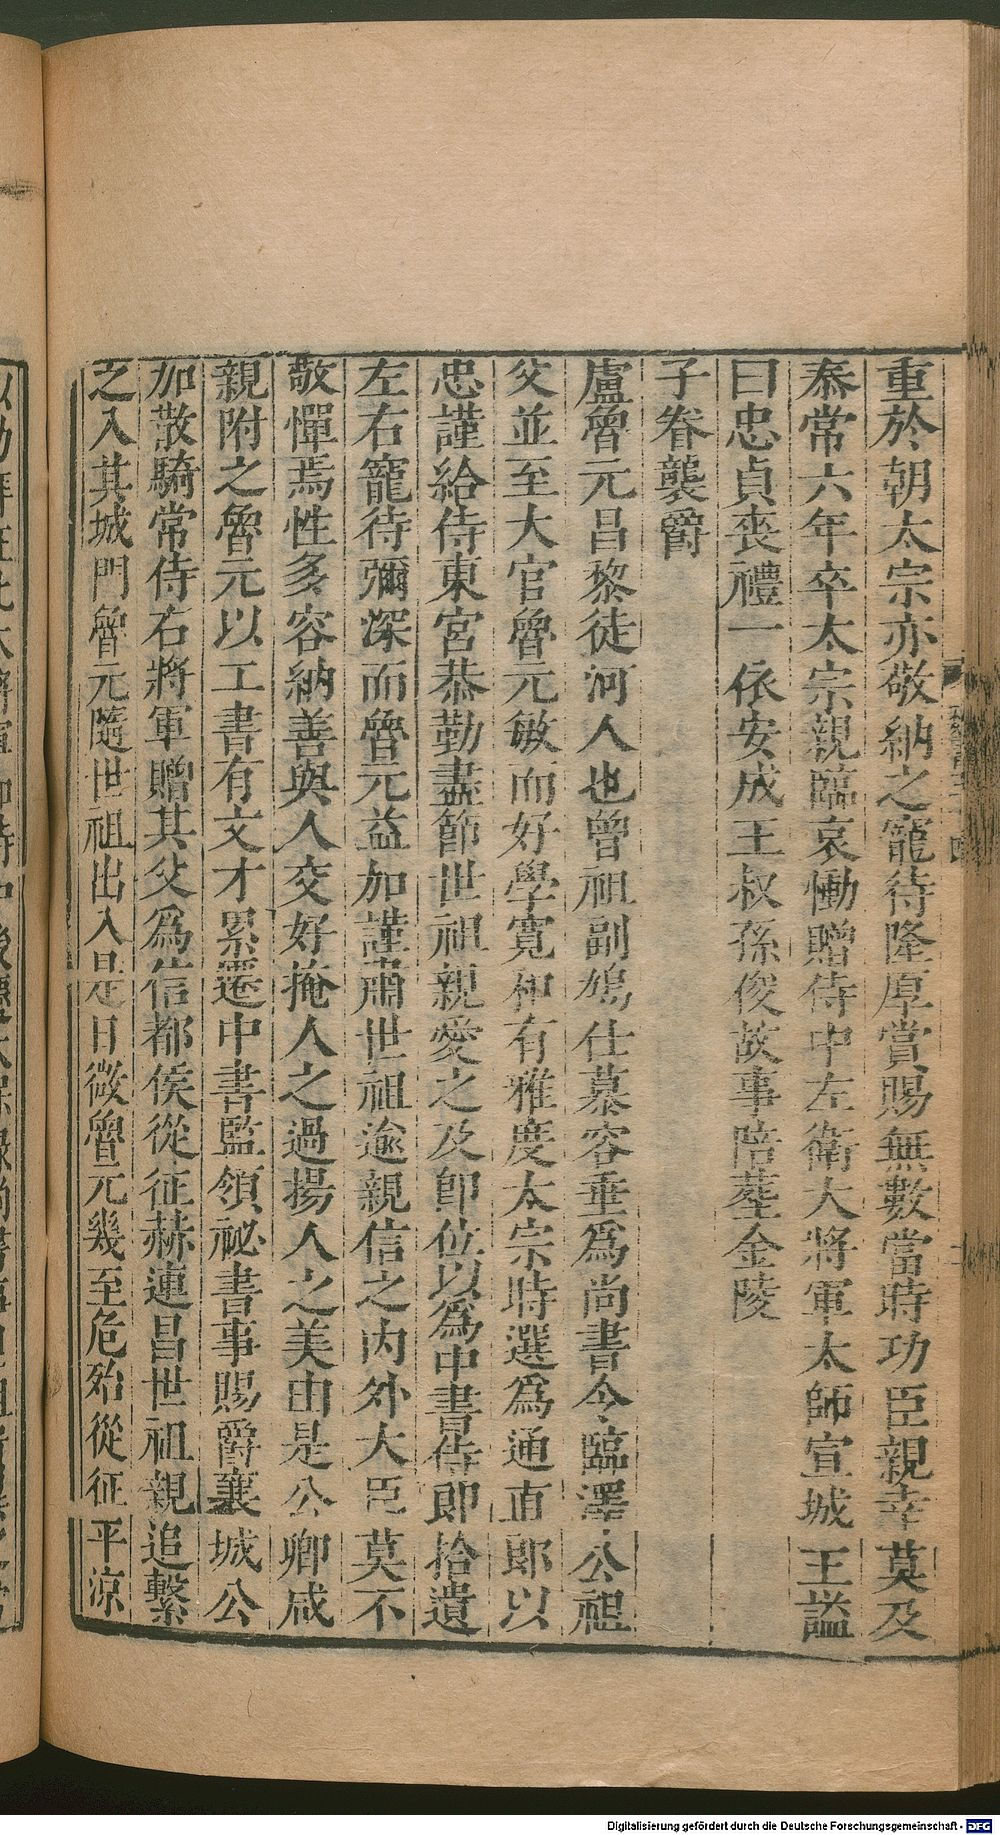 重於朝太宗亦敬納之寵待隆厚賞賜無數當時功臣親幸莫及
泰常六年卒太宗親臨哀慟贈侍中左衛大將軍太師宣城王謚
曰忠貞喪禮一依安成王叔孫俊故事陪塟金陵
子眷襲爵
盧魯元昌黎徒河人也曾祖副鳩仕慕容垂爲尚書令臨澤公祖
父並至大官魯元敏而好學寛和有雅度太宗時選爲通直郎以
忠謹給侍東宮恭勤盡節世祖親愛之及即位以爲中書侍郎拾遺
左右寵待彌深而魯元益加謹肅世祖逾親信之内外大臣莫不
敬憚焉性多容納善與人交好掩人之過揚人之美由是公卿咸
親附之魯元以工書有文才累遷中書監領祕書事賜爵襄城公
加散騎常侍右將軍贈其父爲信都侯從征赫連昌世祖親追擊
之入其城門魯元隨世祖出入是日微魯元幾至危殆從征平涼
Digitalisierung gefördert durch die Deutsche Forschungsgemeinschaft - DFG